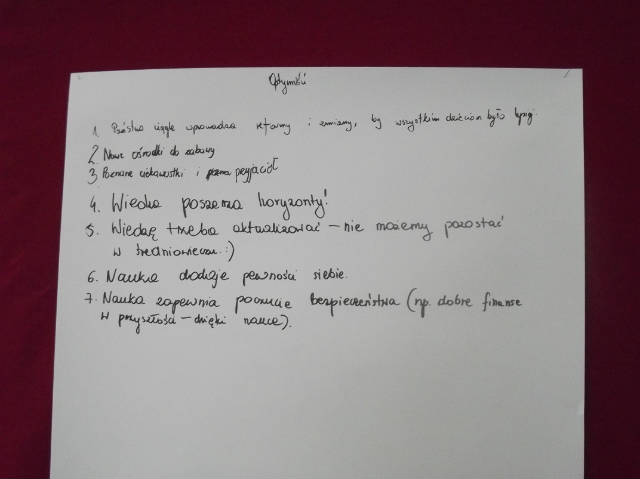 Optymiści
1. Państwo ciągle wprowadza reformy i zmiany, by wszystkim dzieciom było lepiej.
2 Nowe ośrodki do zabawy
3 Poznane ciekawostki i przyjaciół
4. Wiedza poszerza horyzonty!
5. Wiedzę trzeba aktualizować – nie możemy pozostać
w średniowieczu. :)
6. Nauka dodaje pewności siebie.
7. Nauka zapewnia poczucie bezpieczeństwa (np. dobre finanse
w przyszłości – dzięki nauce).